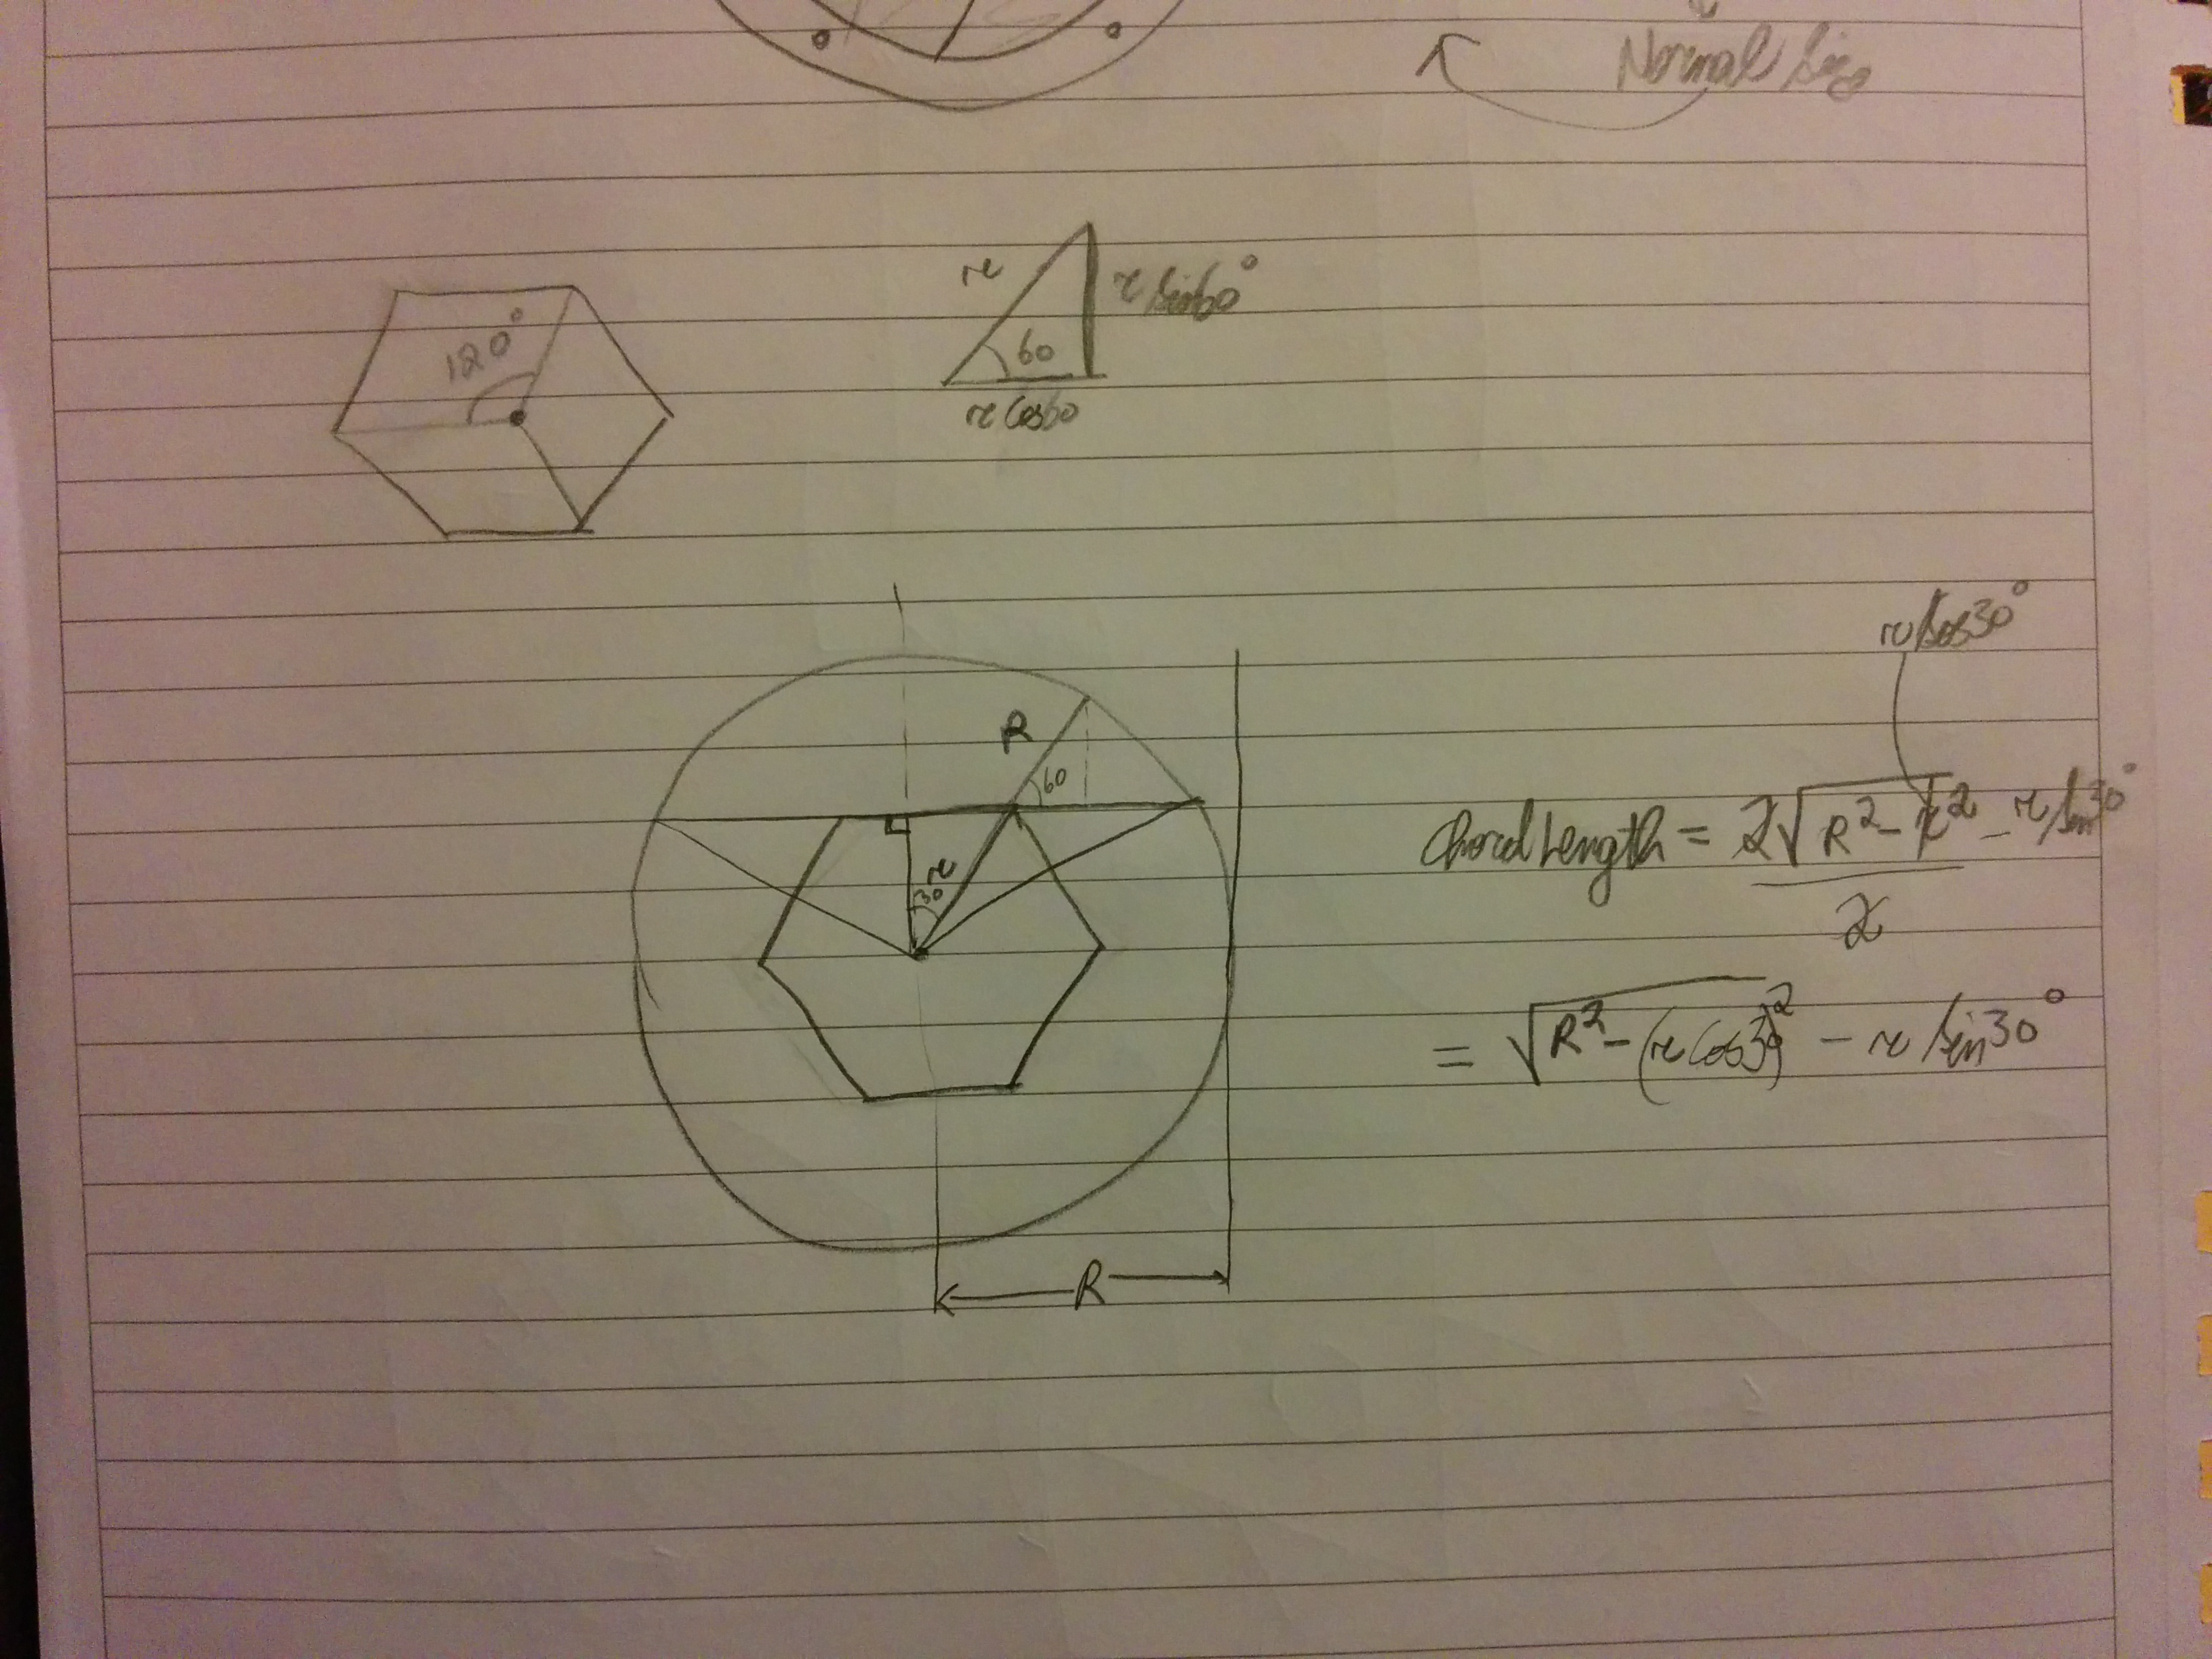 Normal Size
120°
r
r sin60°
60
r cos60
r cos30°
R
60
r
30
Chord Length = 2√R² - r² - r sin30°
2
= √R² - (r cos30)² - r sin30°
R